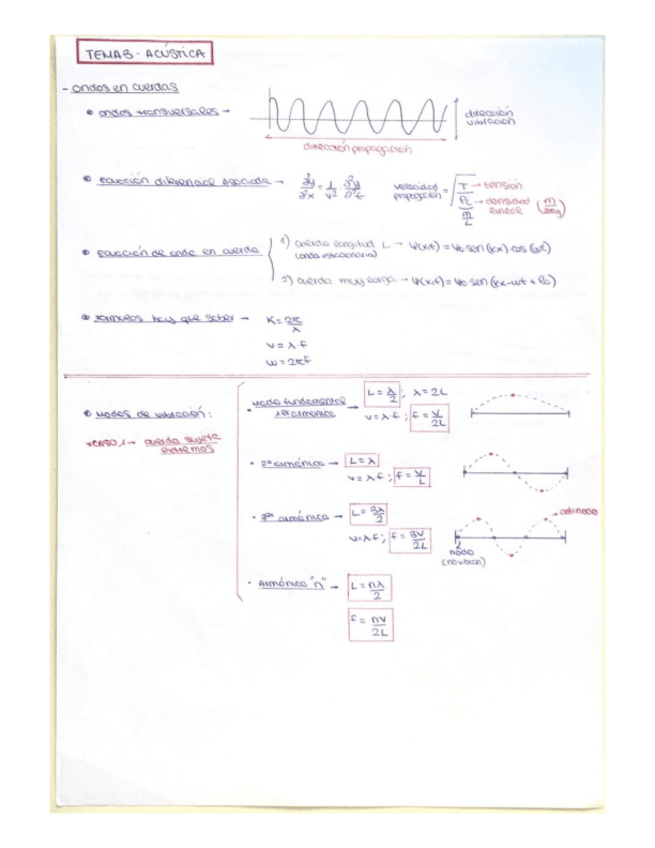 TEMA 3 - ACÚSTICA
- ondas en cuerdas
• ondas transversales →
dirección vibración
dirección propagación
• ecuación diferencial asociada → ∂²y/∂²x = 1/v² ∂²y/∂²t velocidad propagación = √(T/ρL) → tensión
→ densidad lineal
m/L
• ecuación de onda en cuerda
1) cuerda longitud L → Ψ(x,t) = Ψ0 sen (kx) cos (ωt)
(onda estacionaria)
2) cuerda muy larga → Ψ(x,t) = Ψ0 sen (kx-ωt + φ0)
• fórmulas hay que saber → K = 2π/λ
v = λ·f
ω = 2πf
• Modos de vibración:
→ caso 1 → cuerda sujeta extremos
• modo fundamental 1er armónico → L = λ/2 ; λ = 2L
v = λ·f ; f = v/2L
• 2º armónico → L = λ
v = λ·f ; f = v/L
• 3er armónico → L = 3λ/2
v = λ·f ; f = 3v/2L
antinodo
nodo
• Armónico "n" → L = nλ/2
f = nv/2L